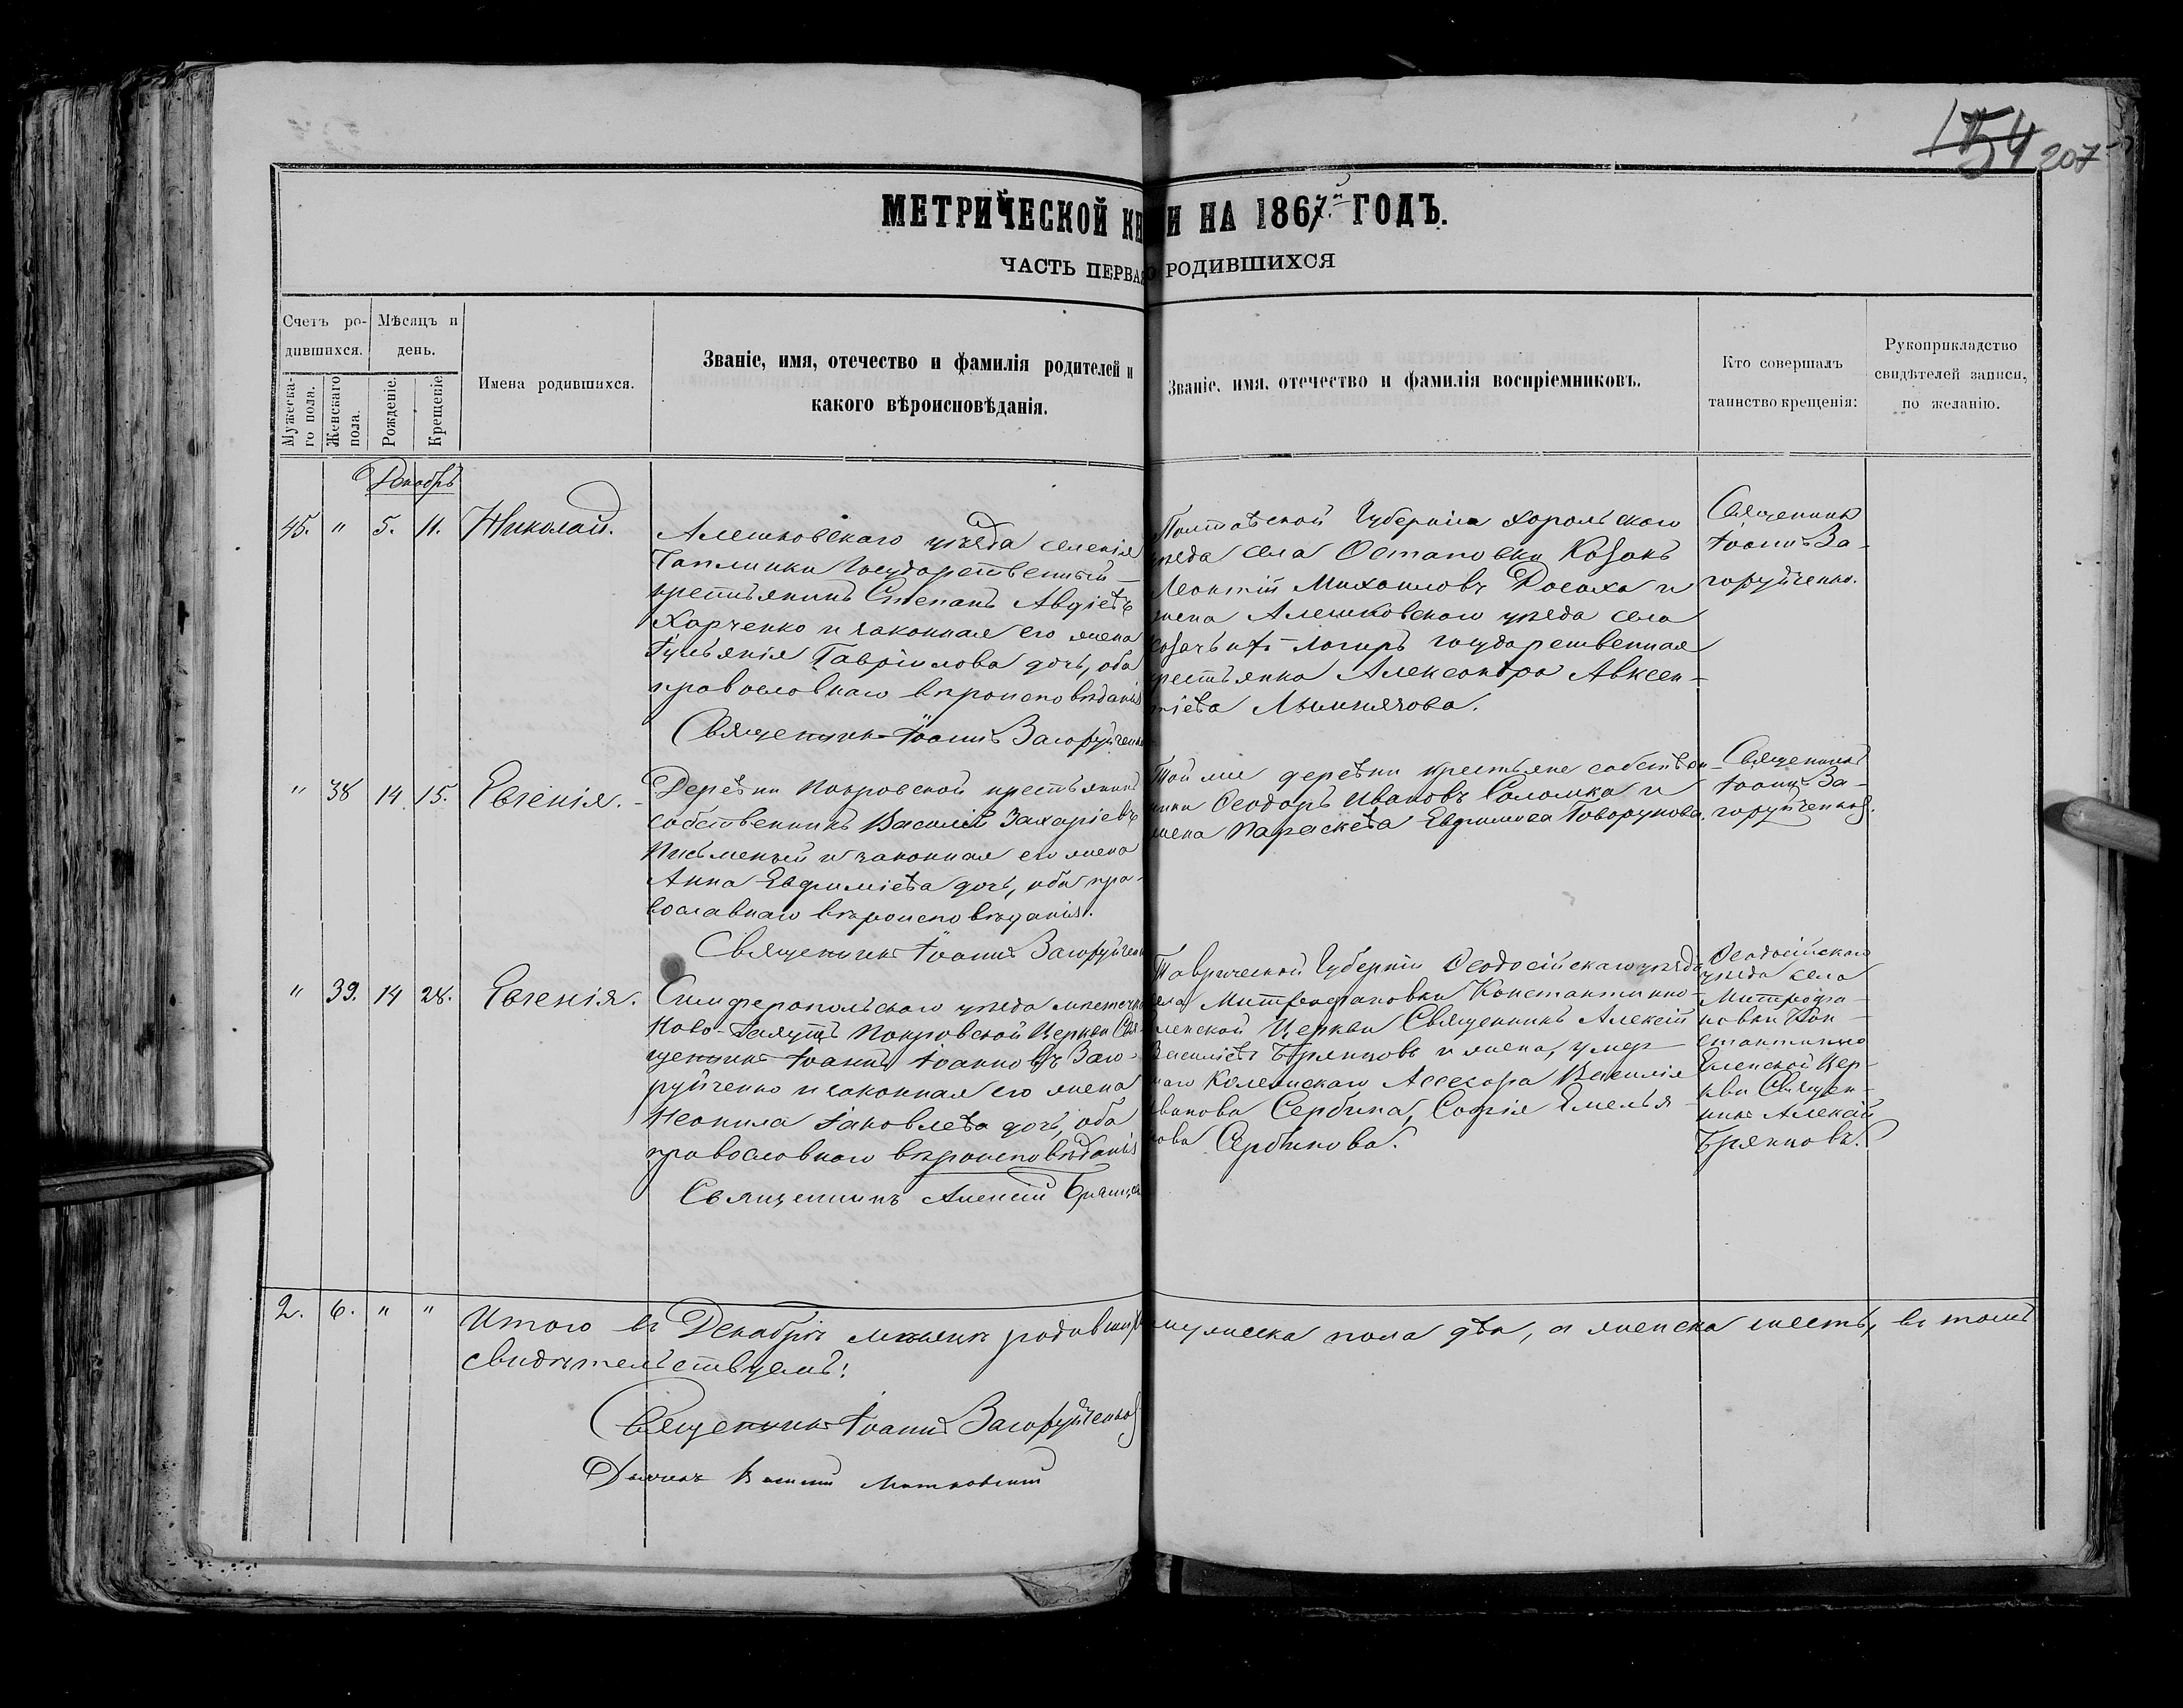 154 207
МЕТРИЧЕСКОЙ КН И НА 1867й ГОДЪ.
ЧАСТЬ ПЕРВАЯ О РОДИВШИХСЯ
Счетъ ро-
дившихся.
Мѣсяцъ и
день.
Мужеска-
го пола.
Женскаго
пола.
Рожденіе.
Крещеніе.
Имена родившихся.
Званіе, имя, отечество и фамилія родителей и
какого вѣроисповѣданія.
Званіе, имя, отечество и фамилія воспріемниковъ.
Кто совершалъ
таинство крещенія:
Рукоприкладство
свидѣтелей записи,
по желанію.
Декабрь
45. " 5. 11. Николай.
Алешковскаго уѣзда селенія
Чаплинки Государственный
крестьянинъ Степанъ Авдіевъ
Харченко и законная его жена
Гавріилова дочь, оба
православнаго вѣроисповѣданія
Священникъ Іоаннъ Загоруйченко
Полтавской Губерніи Хорольскаго
уѣзда села Остаповки Козакъ
Леонтій Михаиловъ Досаха и
жена Алешковскаго уѣзда села
Козачьихъ-Лагерь государственная
крестьянка Александра Авксен-
тіева
Священникъ
Іоаннъ За-
горуйченко.
" 38 14. 15. Евгенія.
Деревни Покровской крестьянинъ
собственникъ Василій Захаріевъ
Письменый и законная его жена
Анна Евфиміева дочь, оба пра-
вославнаго вѣроисповѣданія.
Священникъ Іоаннъ Загоруйченко
Той же деревни крестьяне собствен-
ники Ѳеодоръ Ивановъ Соломка и
жена Параскева Евфимова Говорунова.
Священникъ
Іоаннъ За-
горуйченко.
" 39. 14 28. Евгенія.
Симферопольскаго уѣзда мѣстечка
Ново- Покровской Церкви Свя-
щенникъ Іоаннъ Іоанновъ Заго-
руйченко и законная его жена
Неонила Іаковлева дочь, оба
православнаго вѣроисповѣданія
Священникъ Алексій Брянцевъ
Таврической Губерніи Ѳеодосійскаго уѣзда
села Митрофановки Константино-
Еленской Церкви Священникъ Алексій
Василіевъ Брянцовъ и жена, умер-
шаго Колежскаго Асессора Василія
Иванова Сербина, Софія Емелья-
нова Сербинова.
Ѳеодосійскаго
уѣзда села
Митрофа-
новки Кон-
стантино
Еленской Цер-
кви Священ-
никъ Алексій
Брянцовъ.
2. 6. " " Итого въ Декабрѣ мѣсяцѣ родивших мужеска пола два, а женска шесть, въ томъ
свидѣтельствуемъ:
Священникъ Іоаннъ Загоруйченко
Дьячекъ Василій